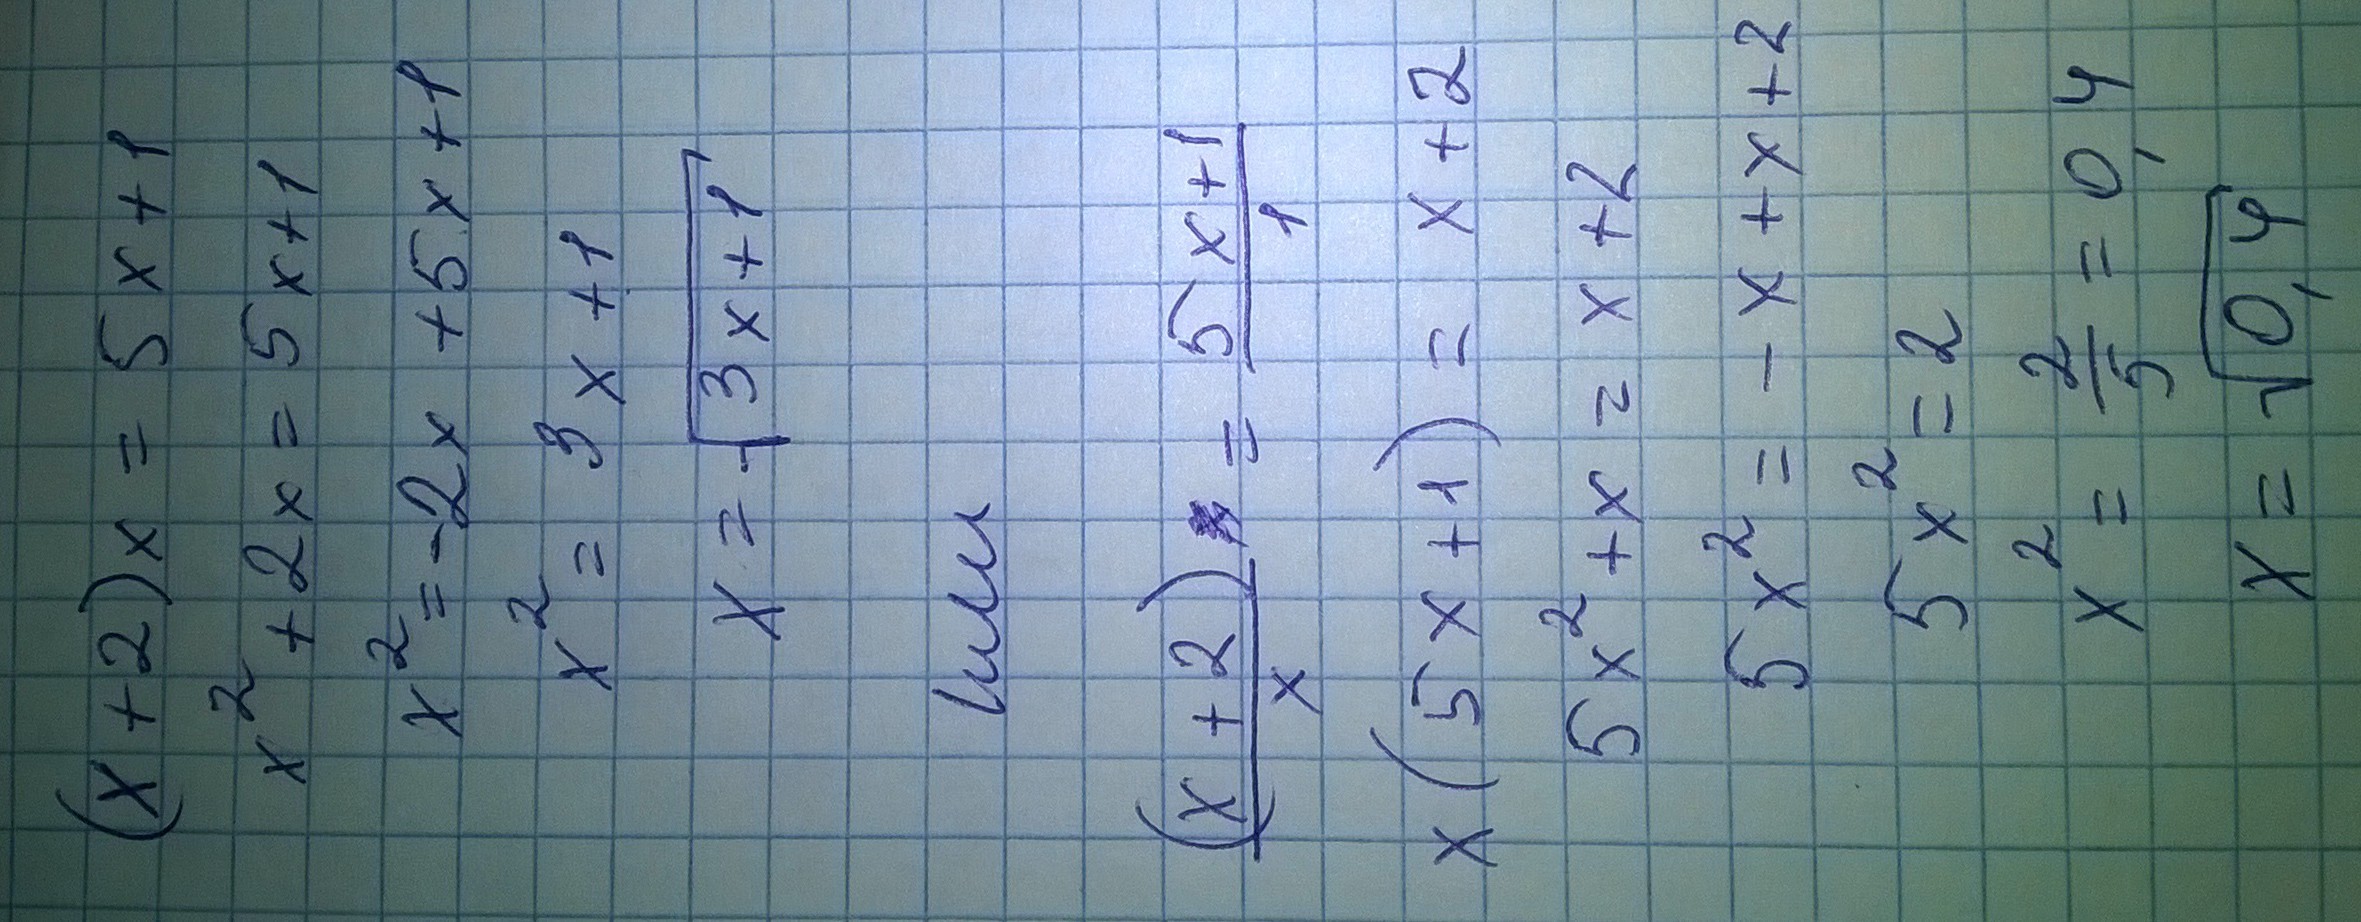 (x+2)x = 5x+1
x²+2x = 5x+1
x² = -2x +5x+1
x² = 3x+1
x = √3x+1
или
(x+2)/x = 5x+1/1
x(5x+1) = x+2
5x²+x = x+2
5x² = -x+x+2
5x² = 2
x² = 2/5 = 0,4
x = √0,4